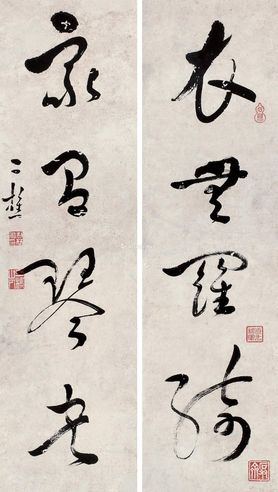 衣無羅綺
家琴書
二樵